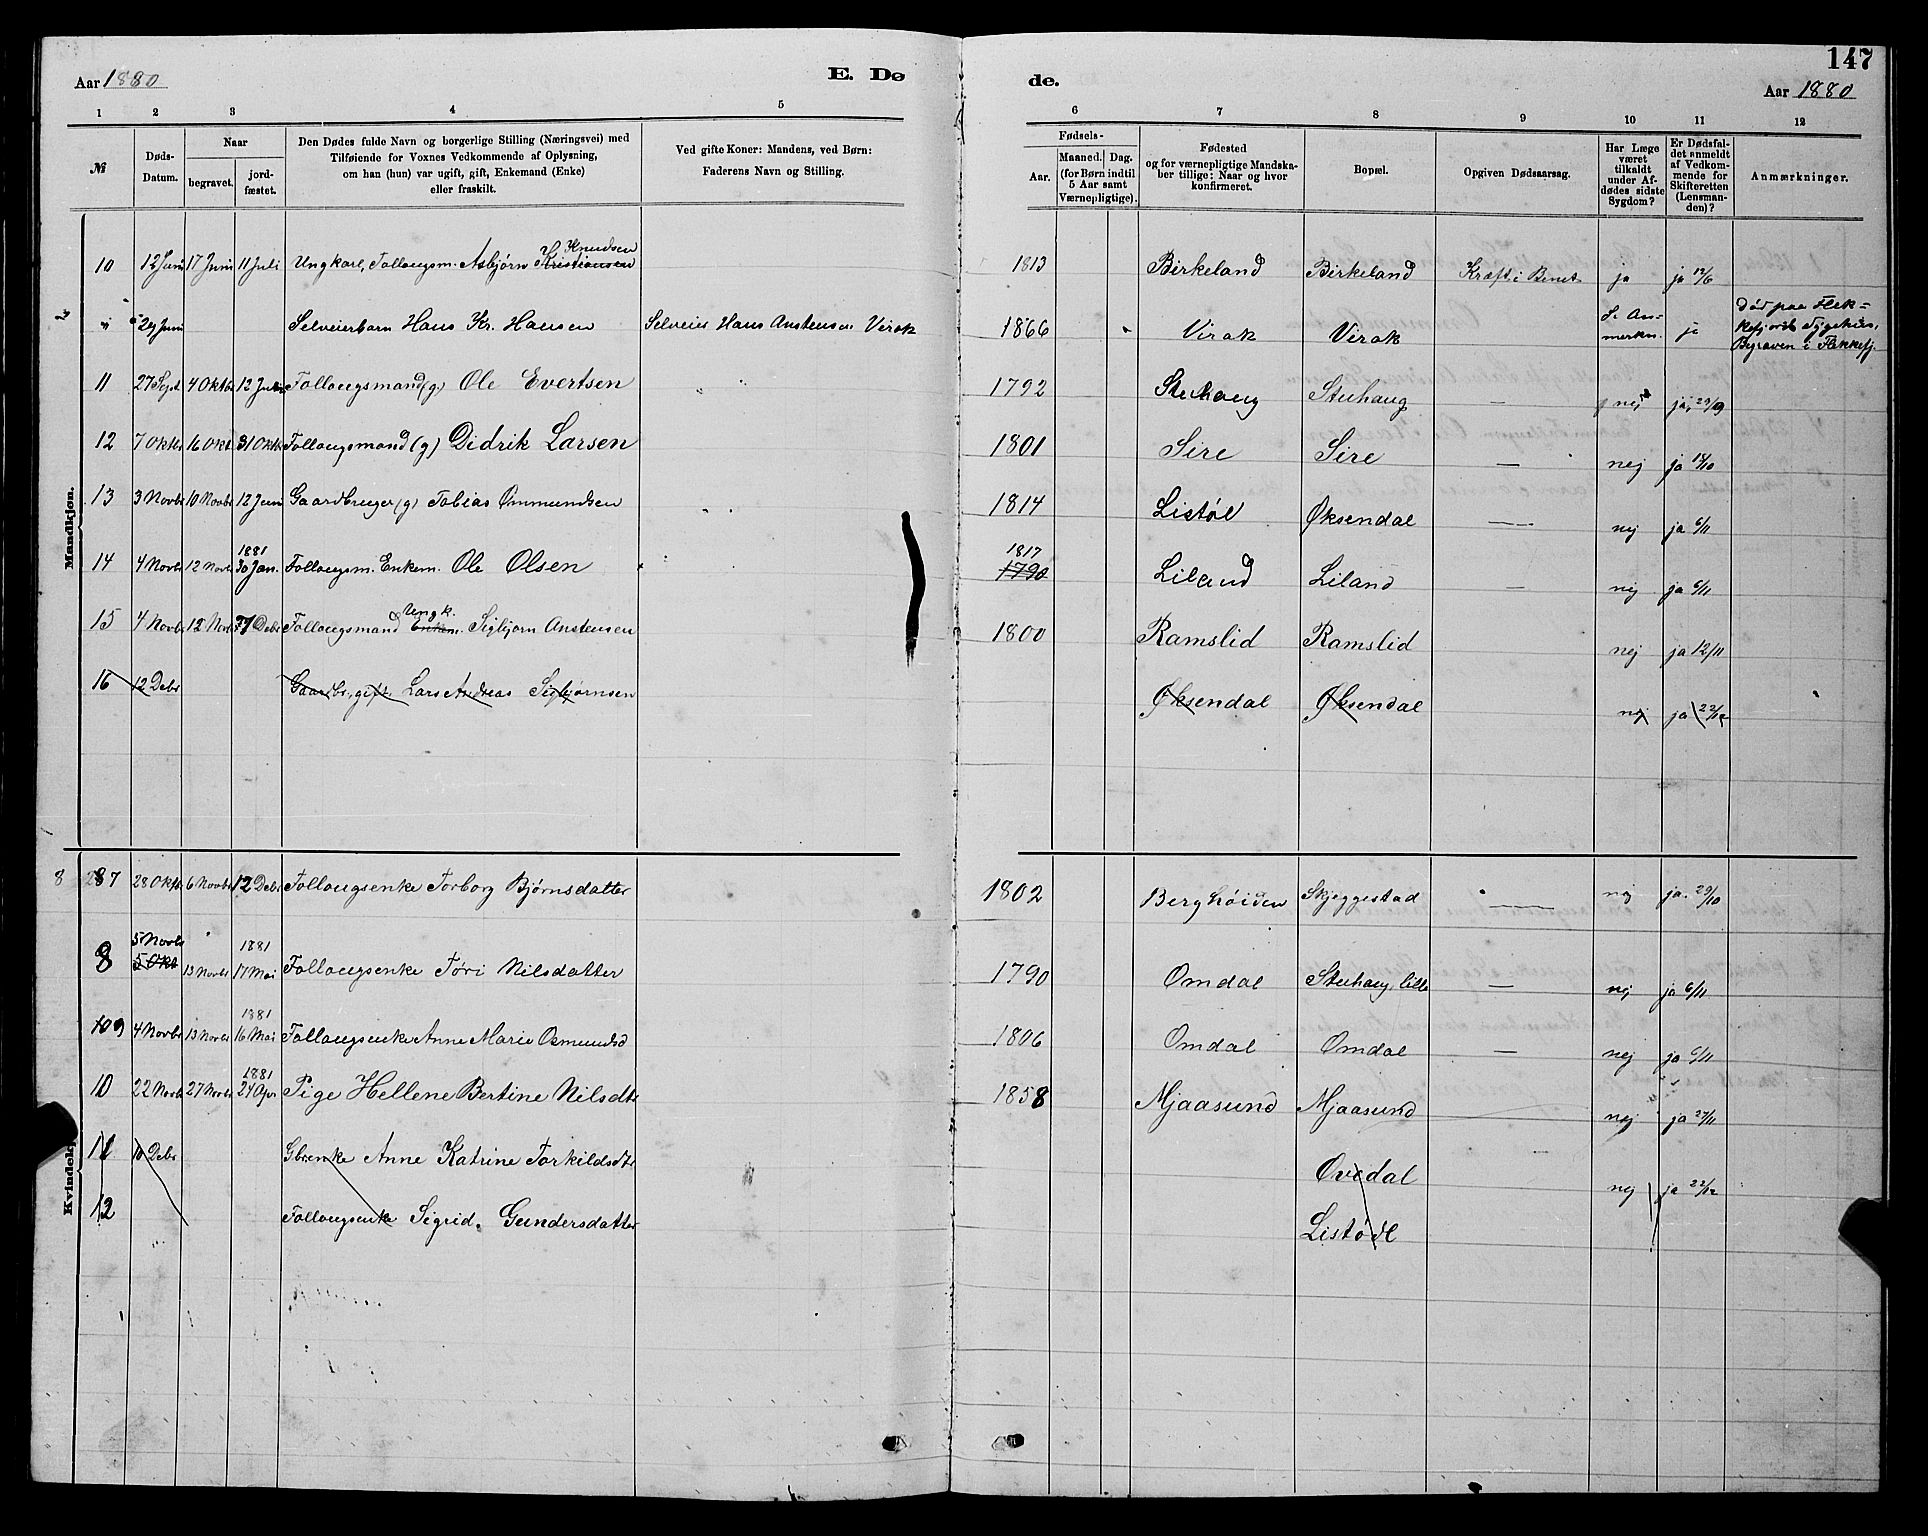 Aar 1880 E. Dø de. 147
Aar 1880
1 2 3 4 5 6 7 8 9 10 11 12
№
Døds-Datum.
Naar
begravet. jordfæstet.
Den Dødes fulde Navn og borgerlige Stilling (Næringsvei) med
Tilføiende for Voxnes Vedkommende af Oplysning,
om han (hun) var ugift, gift, Enkemand (Enke)
eller fraskilt.
Ved gifte Koner: Mandens, ved Børn:
Faderens Navn og Stilling.
Fødsels-
Aar. Maaned. Dag.
(for Børn indtil
5 Aar samt
Værnepligtige).
Fødested
og for værnepligtige Mandska-
ber tillige: Naar og hvor
konfirmeret.
Bopæl.
Opgiven Dødsaarsag.
Har Læge
været
tilkaldt
under Af-
dødes sidste
Sygdom?
Er Dødsfal-
det anmeldt
af Vedkom-
mende for
Skifteretten
(Lensman-
den)?
Anmærkninger.
Mandkjøn.
Knudsen
10 12 Juni 17 Juni 11 Juli Ungkarl, Follougsm. Asbjørn Kristiansen 1813 Birkeland Birkeland Kræft i Benet ja ja 12/6
29 Juni Selveierbarn Hans Kr. Hansen Selveier Hans Anstensen Virak 1866 Virak Virak S. An-
merkn. ja Død paa Flek-
kefjords Sygehus,
Begraven i Flekkefj.
11 27 Sept 4 Oktbr 12 Follougsmand (g) Ole Evertsen 1792 Stuhaug Stuhaug — nej ja, 29/9
12 7 Oktbr 16 Okt 31 Oktbr Follougsmand (g) Didrik Larsen 1801 Sire Sire — nej ja 10
13 3 Novbr 10 Novbr 12 Juni Gaardbruger (g) Tobias Ommundsen 1814 Listøl Øksendal — nej ja 6/11
1881 1817
14 4 Novbr 12 Novbr 30 Jan. Follougsm. Enkem. Ole Olsen 1790 Liland Liland — nej ja 6/11
Ungk.
15 4 Novbr 12 Novbr Debr Follougsmand Enkem. Sigbjørn Anstensen 1800 Ramslid Ramslid nej ja 12/11
16 12 Debr Gaardbr. gift Lars Andreas Sigbjørnsen Øksendal Øksendal nej ja 22/12
Kvindekj
8 7 28 Oktb 6 Novbr 12 Debr Follougsenke Torborg Bjørnsdatter 1802 Berghøiden Skjeggestad — nej ja. 29/10
5 Novbr 1881
8 5 Okt 13 Novbr 17 Mai Follougsenke Tøri Nilsdatter 1790 Omdal Stuhaug, lille — nej ja 6/11
1881
109 4 Novbr 13 Novbr 16 Mai Follougsenke Anne Marie Osmundsd 1806 Omdal Omdal — nej ja 6/11
1881
10 22 Novbr 27 Novbr 24 Apr Pige Hellene Bertine Nilsdtr 1858 Mjaasund Mjaasund nej ja 27/11
11 10 Debr Gbrenke Anne Katrine Torkildsdtr Ovedal nej ja 22/12
12 Follougsenke Sigrid Gundersdatter Listøl